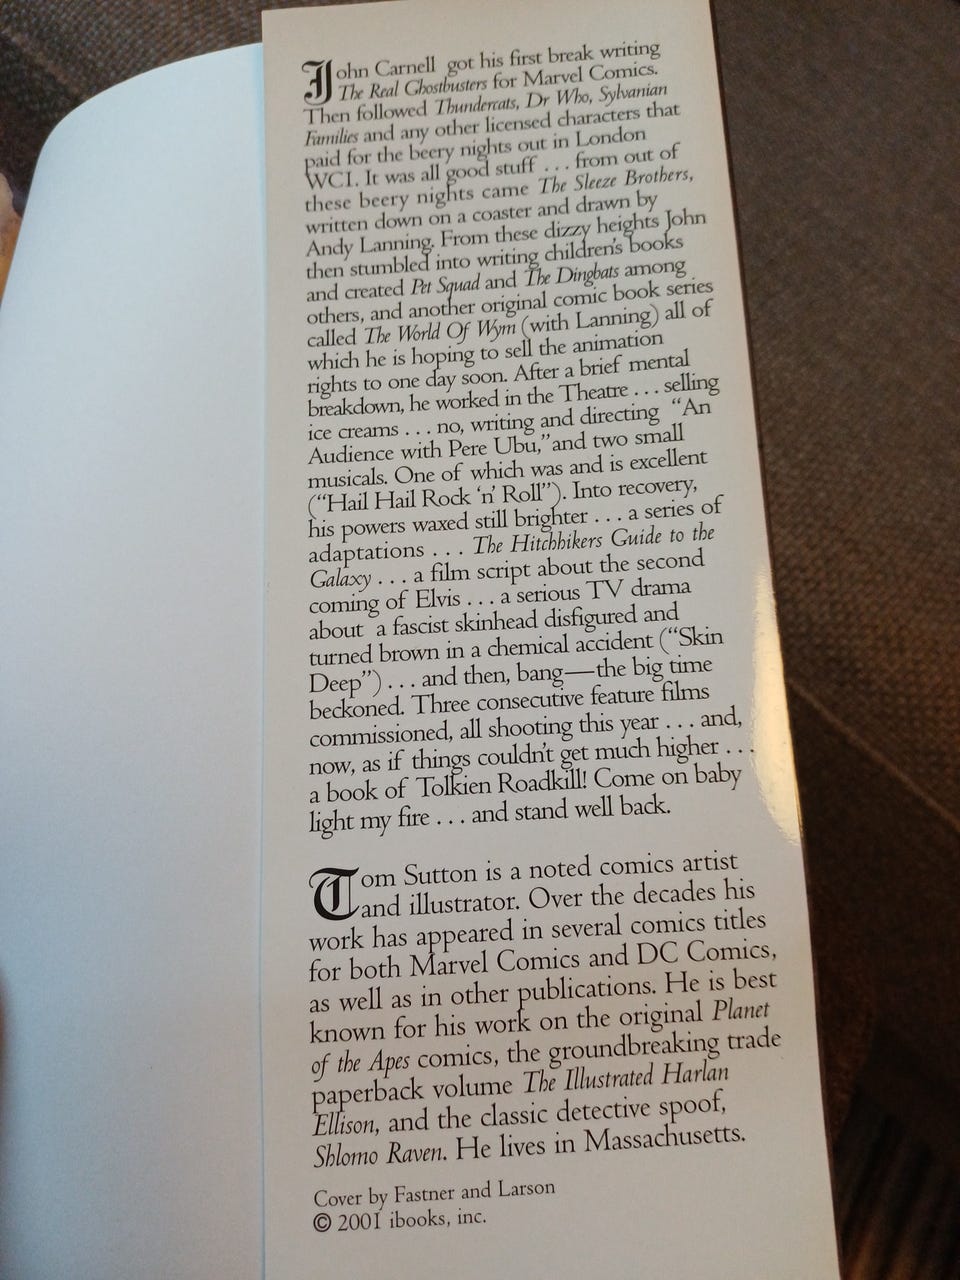 John Carnell got his first break writing
The Real Ghostbusters for Marvel Comics.
Then followed Thundercats, Dr Who, Sylvanian
Families and any other licensed characters that
paid for the beery nights out in London
WC1. It was all good stuff . . . from out of
these beery nights came The Sleeze Brothers,
written down on a coaster and drawn by
Andy Lanning. From these dizzy heights John
then stumbled into writing children's books
and created Pet Squad and The Dingbats among
others, and another original comic book series
called The World Of Wym (with Lanning) all of
which he is hoping to sell the animation
rights to one day soon. After a brief mental
breakdown, he worked in the Theatre . . . selling
ice creams . . . no, writing and directing "An
Audience with Pere Ubu," and two small
musicals. One of which was and is excellent
("Hail Hail Rock 'n' Roll"). Into recovery,
his powers waxed still brighter . . . a series of
adaptations . . . The Hitchhikers Guide to the
Galaxy . . . a film script about the second
coming of Elvis . . . a serious TV drama
about a fascist skinhead disfigured and
turned brown in a chemical accident ("Skin
Deep") . . . and then, bang—the big time
beckoned. Three consecutive feature films
commissioned, all shooting this year . . . and,
now, as if things couldn't get much higher . . .
a book of Tolkien Roadkill! Come on baby
light my fire . . . and stand well back.
Tom Sutton is a noted comics artist
and illustrator. Over the decades his
work has appeared in several comics titles
for both Marvel Comics and DC Comics,
as well as in other publications. He is best
known for his work on the original Planet
of the Apes comics, the groundbreaking trade
paperback volume The Illustrated Harlan
Ellison, and the classic detective spoof,
Shlomo Raven. He lives in Massachusetts.
Cover by Fastner and Larson
© 2001 ibooks, inc.